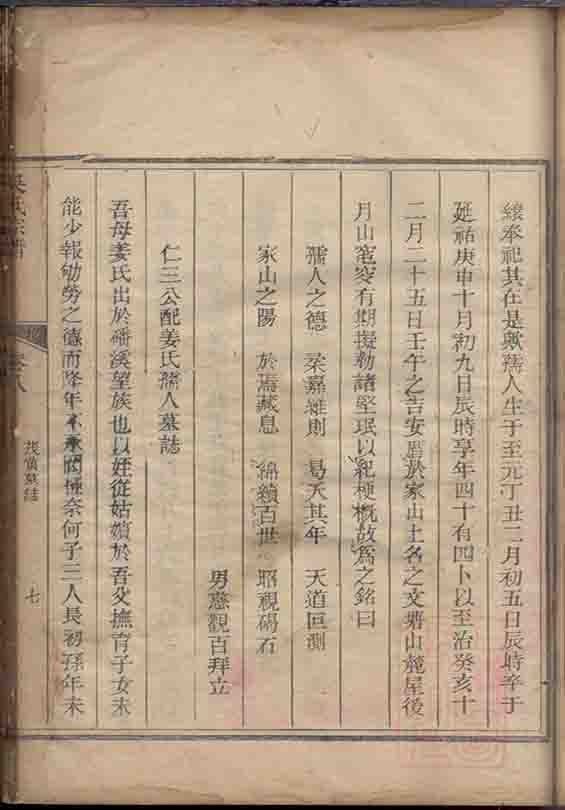 續奉祀其在是歟孺人生于至元丁丑二月初五日辰時卒于
延祐庚申十月初九日辰時享年四十有四卜以至治癸亥十
二月二十五日壬午之吉安厝於家山土名之文塘山麓屋後
月山窀穸有期擬勒諸堅珉以紀梗概故爲之銘曰
孺人之德 柔嘉維則 曷夭其年 天道叵測
家山之陽 於焉藏息 綿續百世 昭視碣石
男慈觀百拜立
仁三公配姜氏孺人墓誌
吾母姜氏出於磻溪望族也以姪從姑嬪於吾父撫育子女未
能少報劬勞之德而降年不永奈何子三人長初孫年未
吳氏宗譜
卷八
墓誌
七